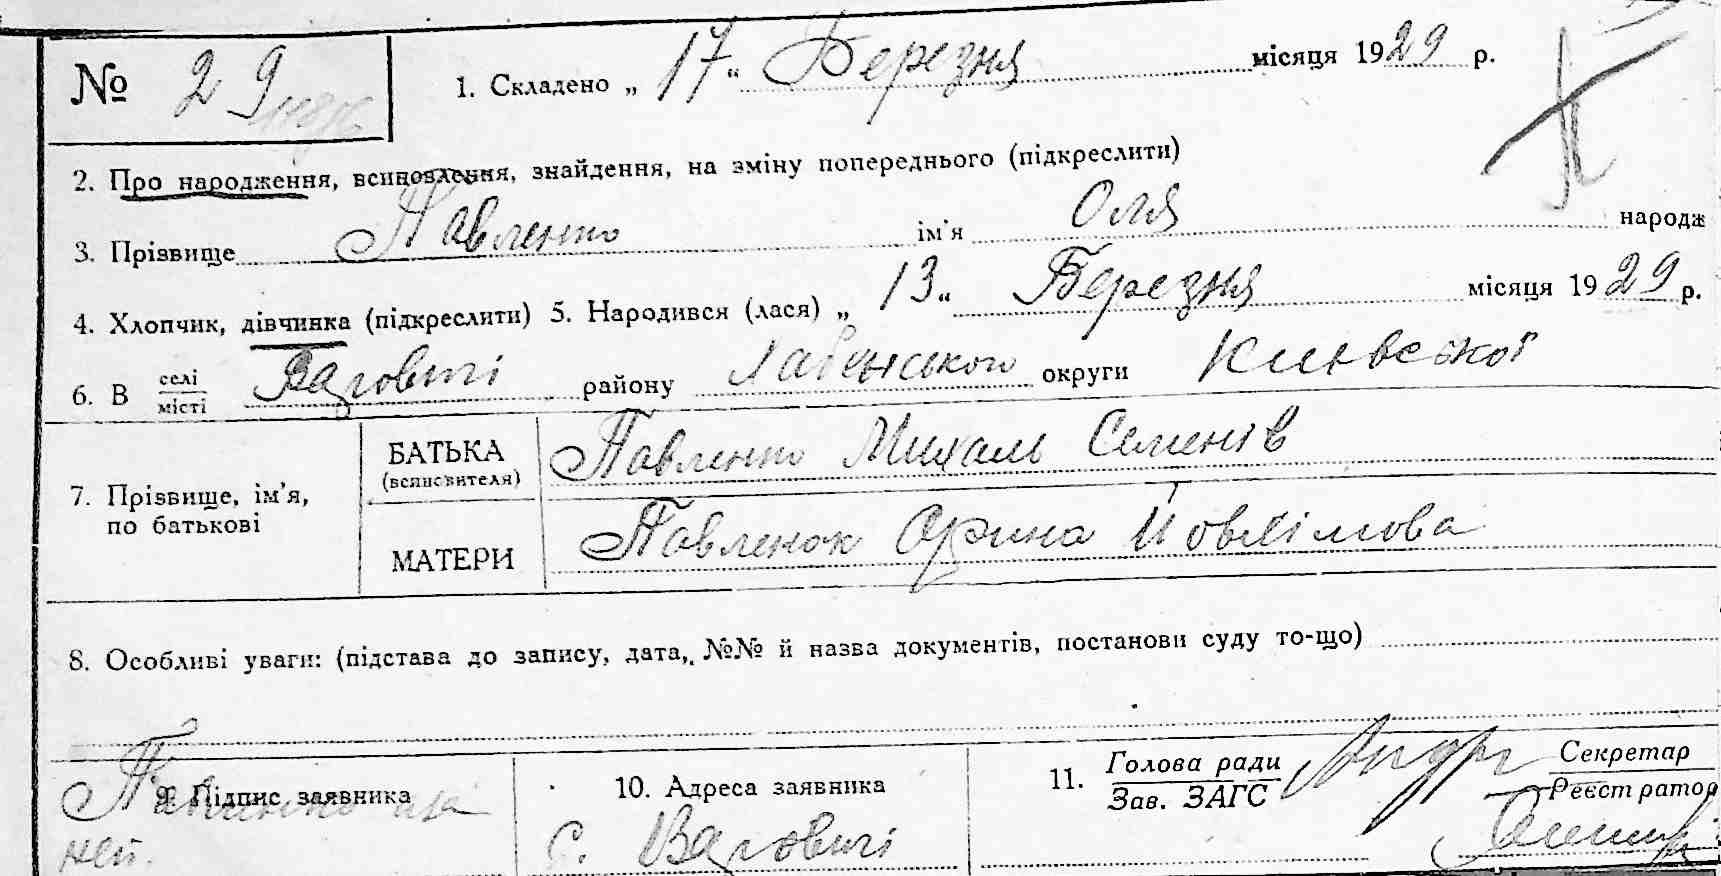 № 29
1. Складено „ 17 “ Березня місяця 1929 р.
2. Про народження, всиновлення, знайдення, на зміну попереднього (підкреслити)
3. Прізвище Павленко ім'я Оля народж
4. Хлопчик, дівчинка (підкреслити) 5. Народився (лася) „ 13 “ Березня місяця 1929 р.
6. В селі місті Варовичі району Хабенського округи Київської
7. Прізвище, ім'я, по батькові
БАТЬКА (всиновителя) Павленко Михаль Семенів
МАТЕРИ Павленок Орина Йовхімова
8. Особливі уваги: (підстава до запису, дата, №№ й назва документів, постанови суду то-що)
9. Підпис заявника
Павленко
10. Адреса заявника
с. Варовичі
11. Голова ради
Зав. ЗАГС
Секретар
Реєстратор